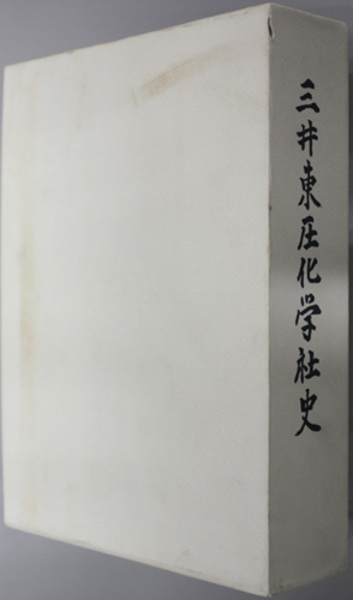 三井東圧化学社史